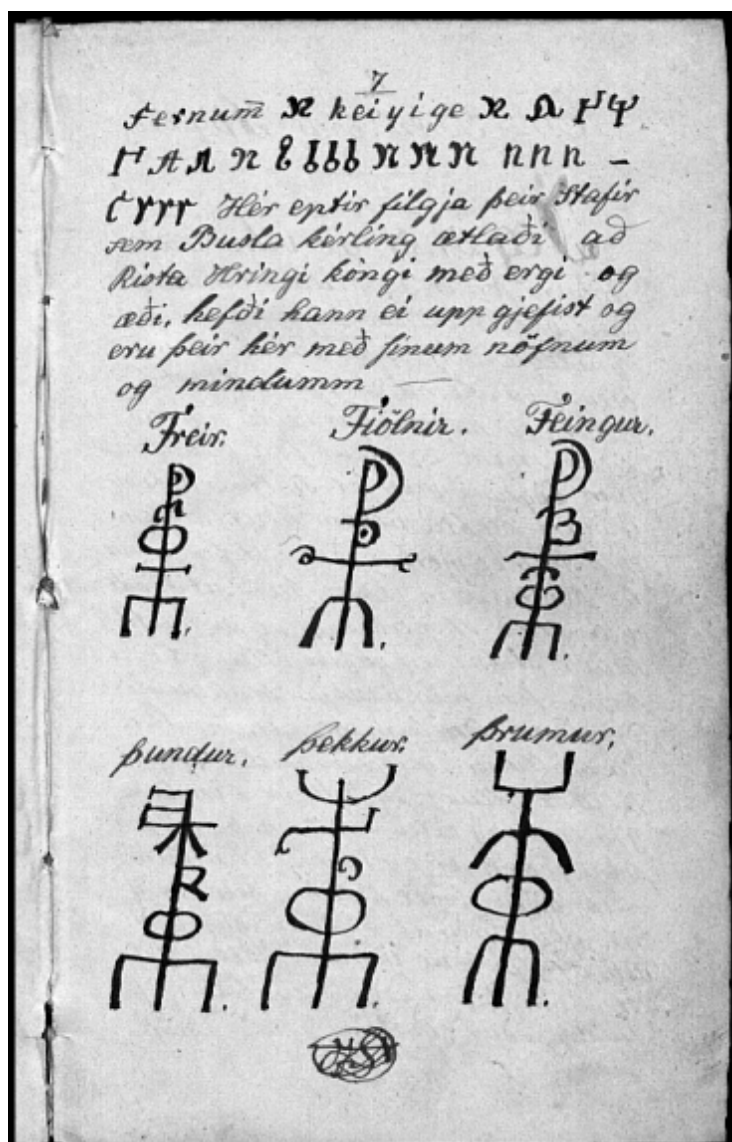 7
Fernum̅ keiyige
Hér eptir filgja þeir Stafir
sem Busla kérling ætlaði að
Rista Hringi kóngi með ergi og
æði, hefði hann ei upp gjefist og
eru þeir hér með sínum nöfnum
og mindumm —
Freir.
Fiölnir.
Feingur.
þundur.
þekkur.
þrumur.